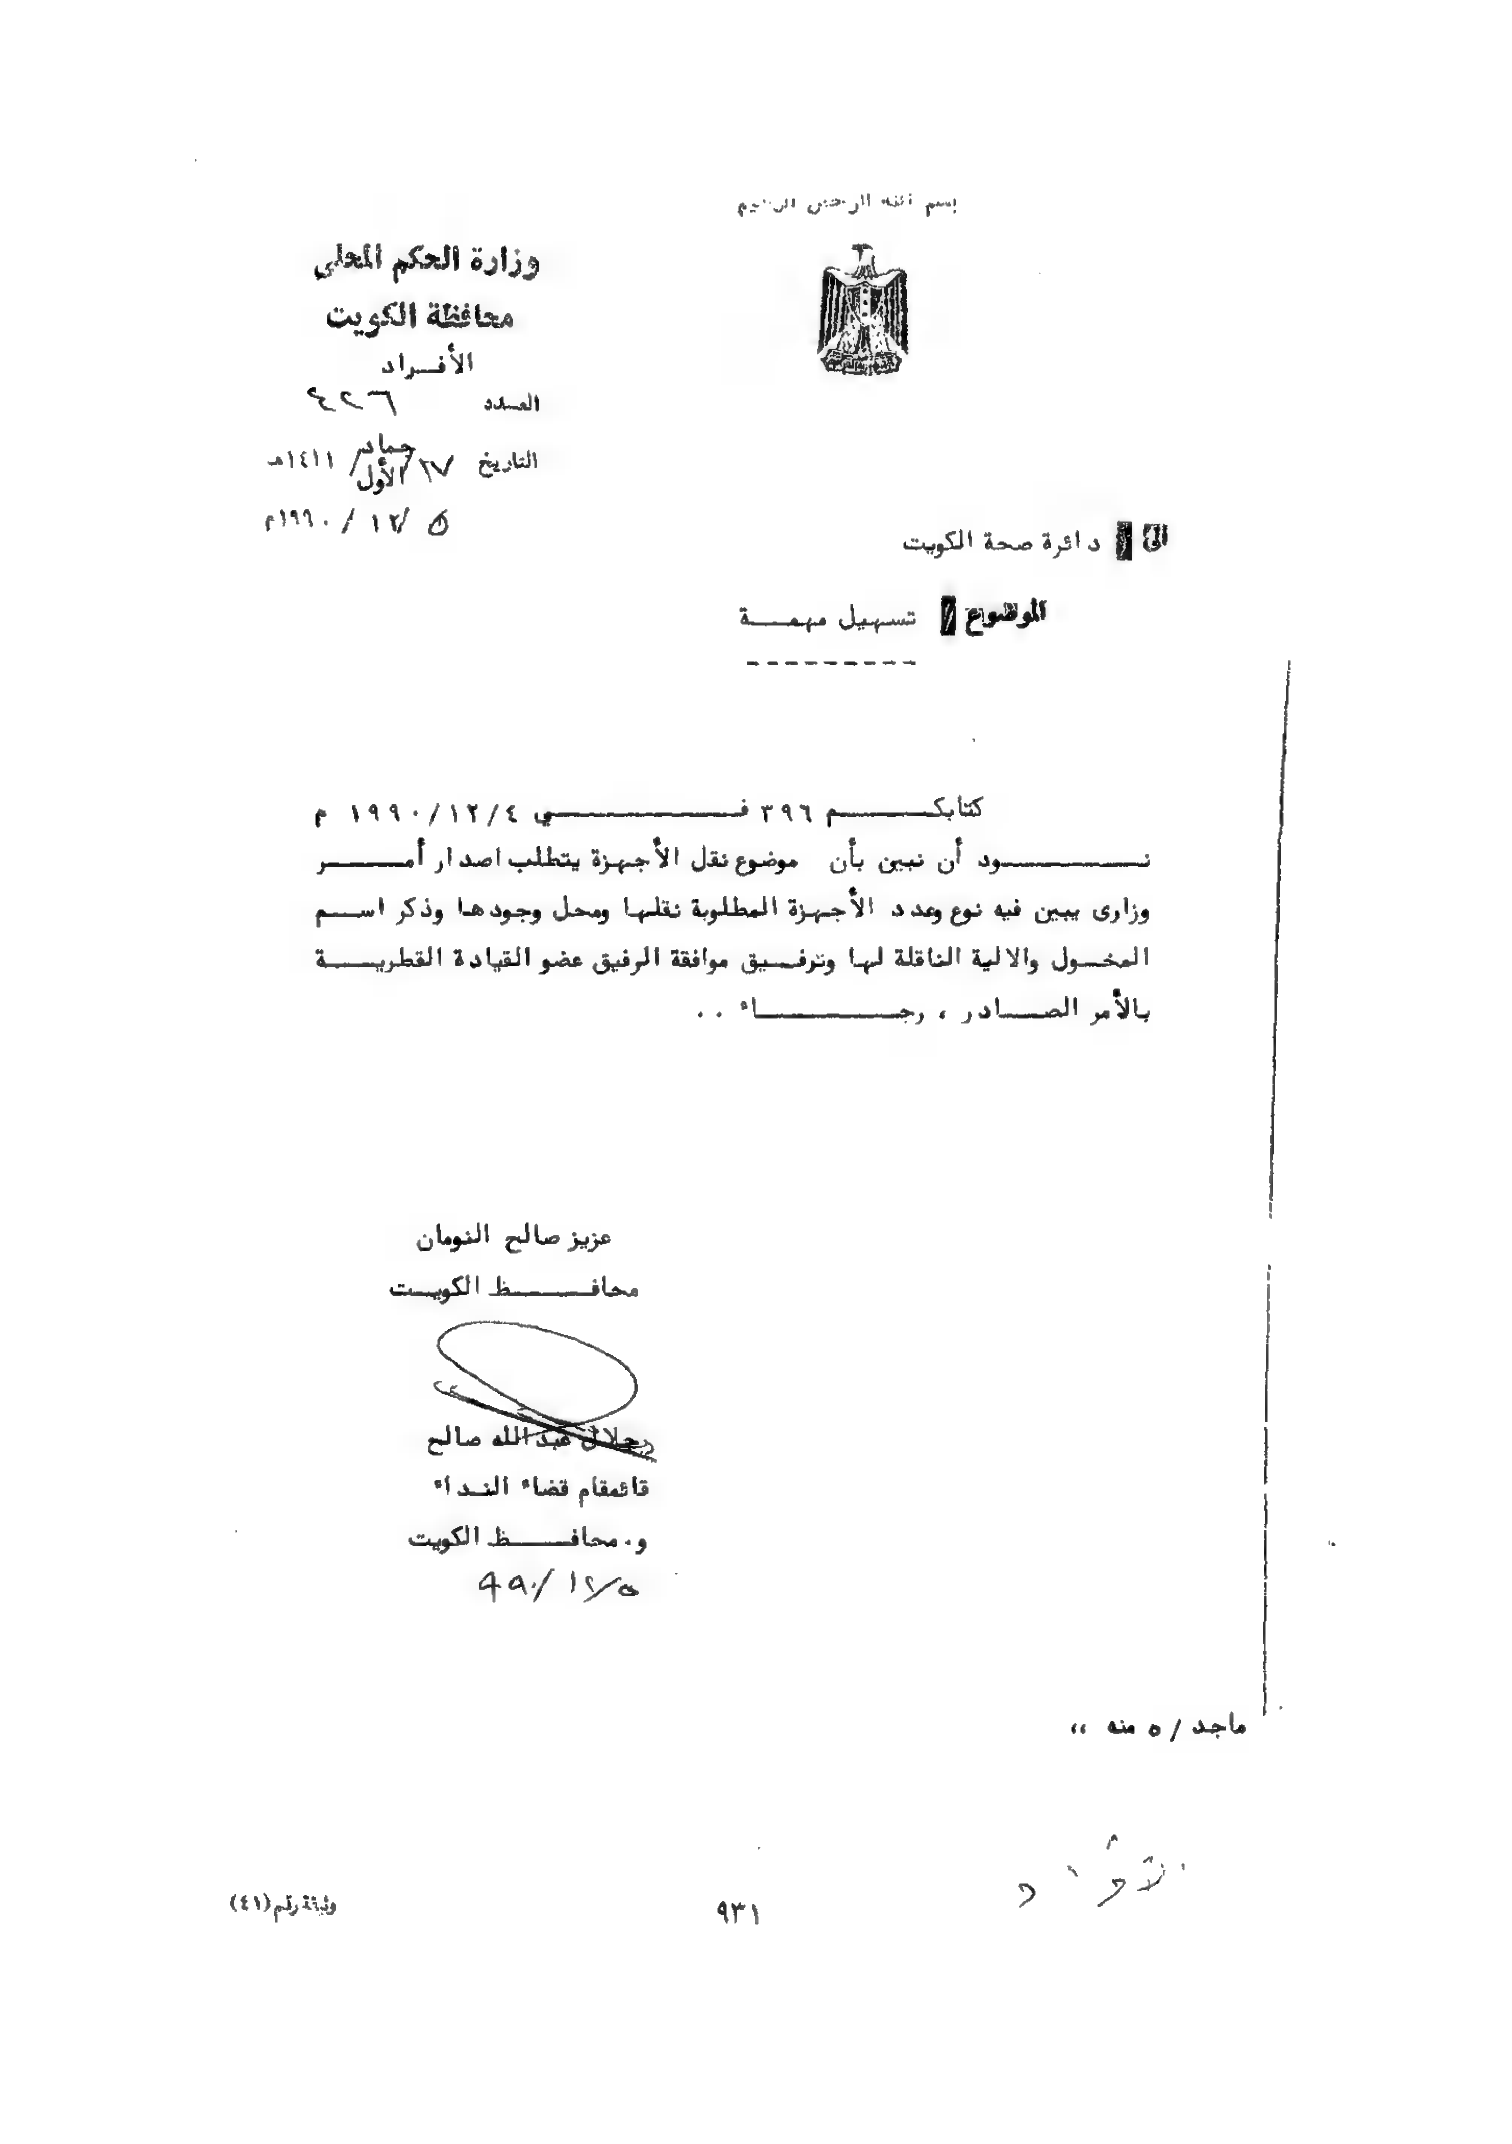 بسم الله الرحمن الرحيم
وزارة الحكم المحلي
محافظة الكويت
الأفراد
العدد ٤٢٦
التاريخ ١٧/ جماد الأول/ ١٤١١هـ
٥ /١٢/ ١٩٩٠م
الى / دائرة صحة الكويت
الموضوع / تسهيل مهمة
كتابكم ٣٩٦ في ١٩٩٠/١٢/٤ م
نود أن نبين بأن موضوع نقل الأجهزة يتطلب اصدار أمر
وزارى يبين فيه نوع وعدد الأجهزة المطلوبة نقلها ومحل وجودها وذكر اسم
المخول والالية الناقلة لها وترفيق موافقة الرفيق عضو القيادة القطرية
بالأمر الصادر ، رجاء ..
عزيز صالح النومان
محافظ الكويت
جلال عبدالله صالح
قائمقام قضاء النداء
و. محافظ الكويت
٩٩٠/١٢/٥
ماجد / ٥ منه ،،
وثيقة رقم (٤١)
٩٣١